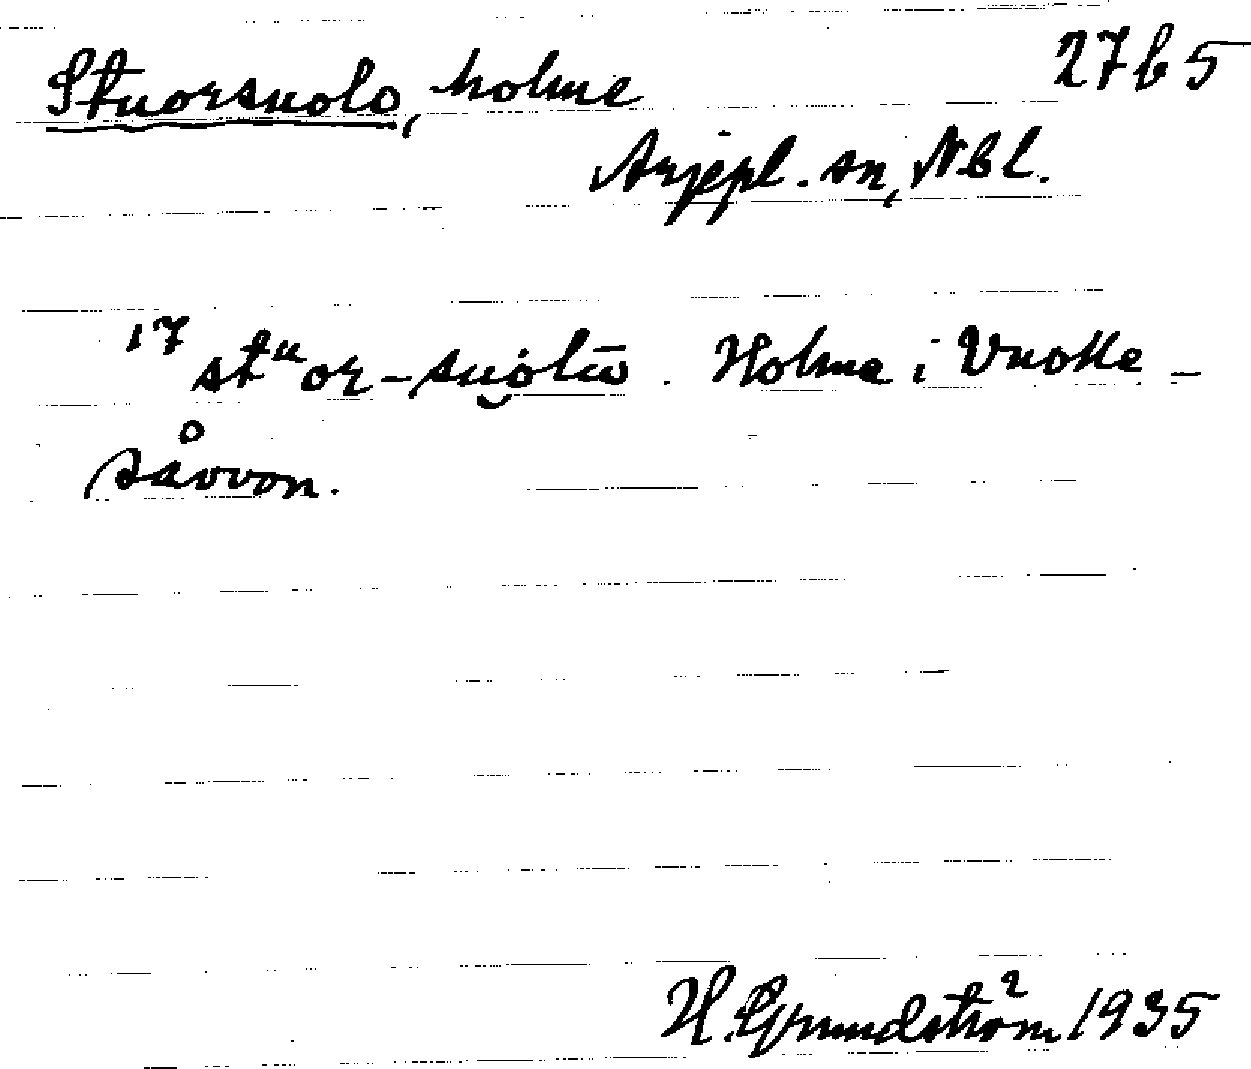 Stuorsuolo, holme 27b5
Arjepl. sn, Nbl.
17 stᵘor-suo̯lū. Holme i Vuokke-
såvvon.
H. Grundström 1935